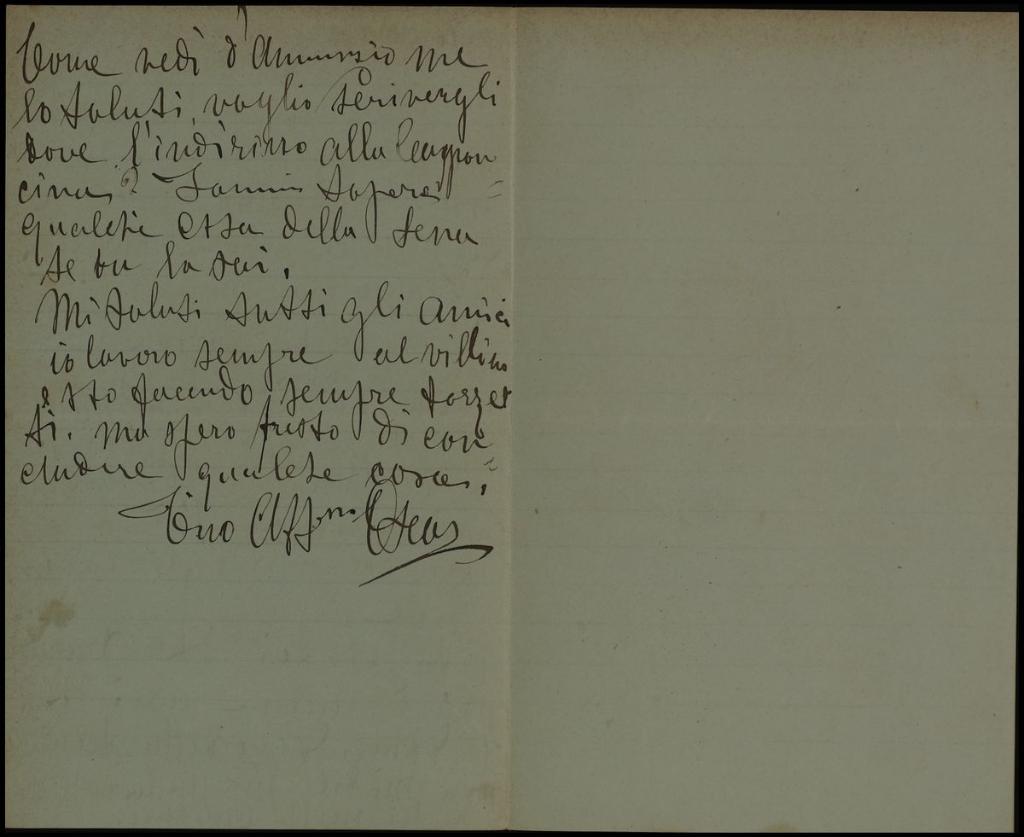 Come vedi d'Annunzio me
lo saluti, voglio scrivergli
dove l'indirizzo alla Cappon
cina? Fammi sapere
qualche cosa della Serra
se tu la sai.
Mi saluti tutti gli amici
io lavoro sempre al villino
e sto facendo sempre bozzet
ti. ma spero presto di con=
cludere qualche cosa,
Tuo Aff.mo